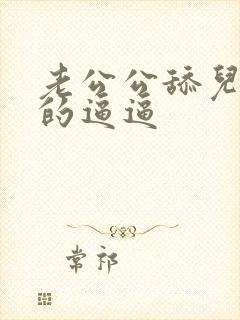 老公公舔兒
的逼逼
常祁